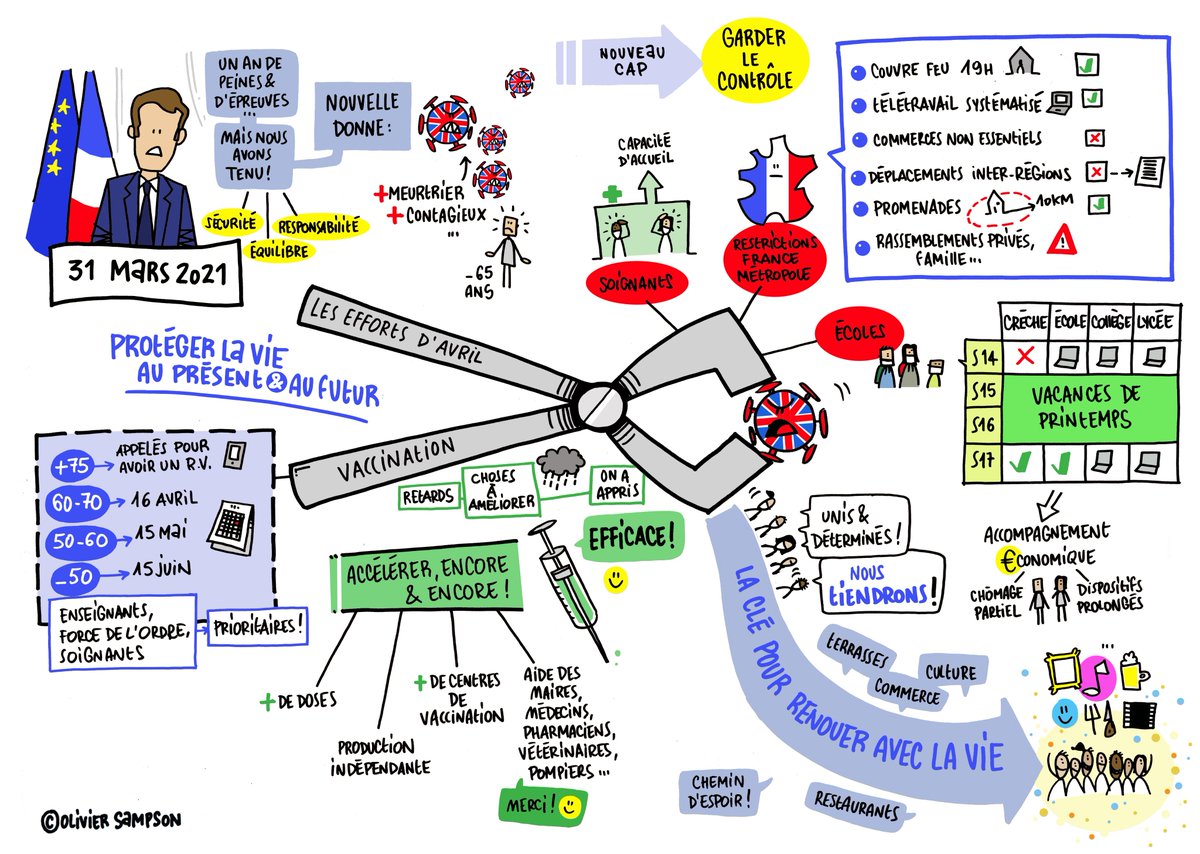 UN AN DE
PEINES &
D'ÉPREUVES
...
MAIS NOUS
AVONS
TENU !
NOUVELLE
DONNE :
SÉCURITÉ
RESPONSABILITÉ
ÉQUILIBRE
31 MARS 2021
+ MEURTRIER
+ CONTAGIEUX
...
-65
ANS
NOUVEAU
CAP
GARDER
LE
CONTRÔLE
CAPACITÉ
D'ACCUEIL
+
SOIGNANTS
RESTRICTIONS
FRANCE
MÉTROPOLE
ÉCOLES
COUVRE FEU 19H
TÉLÉTRAVAIL SYSTÉMATISÉ
COMMERCES NON ESSENTIELS
DÉPLACEMENTS INTER-RÉGIONS
PROMENADES 10KM
RASSEMBLEMENTS PRIVÉS,
FAMILLE...
CRÈCHE ÉCOLE COLLÈGE LYCÉE
S14
S15
S16
S17
VACANCES DE
PRINTEMPS
ACCOMPAGNEMENT
€CONOMIQUE
CHÔMAGE
PARTIEL
DISPOSITIFS
PROLONGÉS
PROTÉGER LA VIE
AU PRÉSENT & AU FUTUR
LES EFFORTS D'AVRIL
VACCINATION
+75
APPELÉS POUR
AVOIR UN R.V.
60-70
16 AVRIL
50-60
15 MAI
-50
15 JUIN
ENSEIGNANTS,
FORCE DE L'ORDRE,
SOIGNANTS
PRIORITAIRES !
REGARDS
CHOSES
À
AMÉLIORER
ON A
APPRIS
EFFICACE !
ACCÉLÉRER, ENCORE
& ENCORE !
+ DE DOSES
PRODUCTION
INDÉPENDANTE
+ DE CENTRES
DE
VACCINATION
AIDE DES
MAIRES,
MÉDECINS,
PHARMACIENS,
VÉTÉRINAIRES,
POMPIERS ...
MERCI !
UNIS &
DÉTERMINÉS !
NOUS
TIENDRONS !
LA CLÉ POUR RENOUER AVEC LA VIE
TERRASSES
COMMERCE
CULTURE
...
CHEMIN
D'ESPOIR !
RESTAURANTS
©OLIVIER SAMPSON